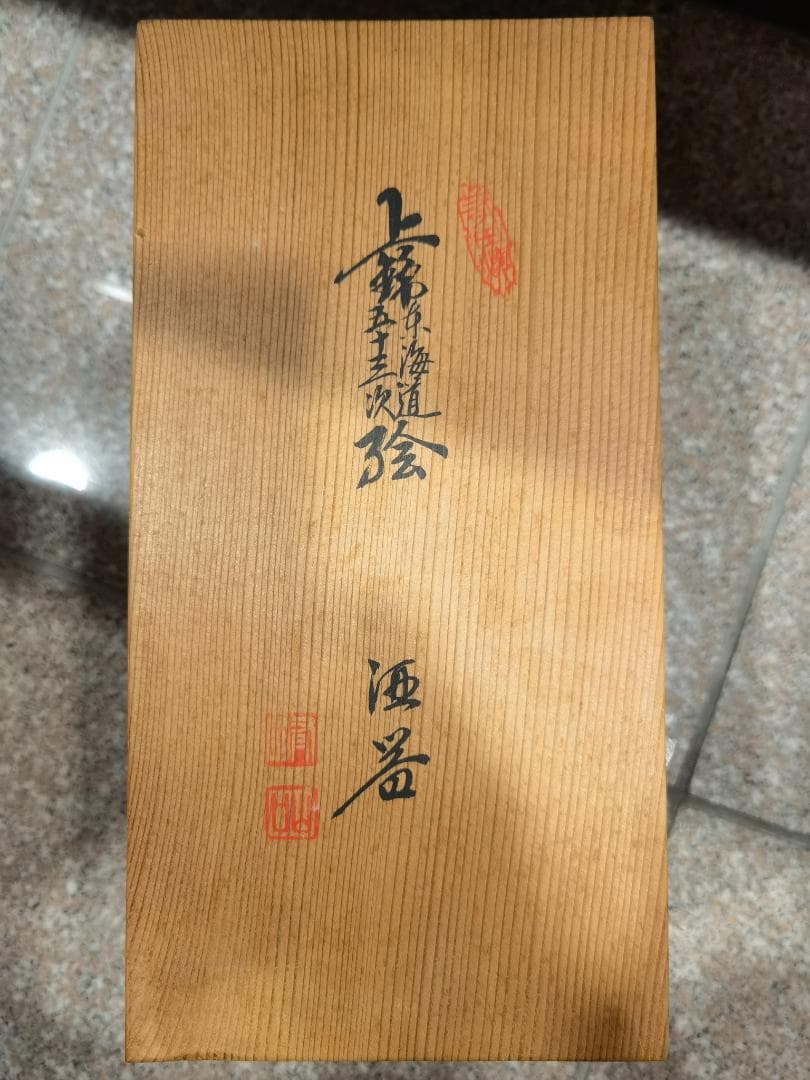 上錫
東海道
五十三次
絵
酒器